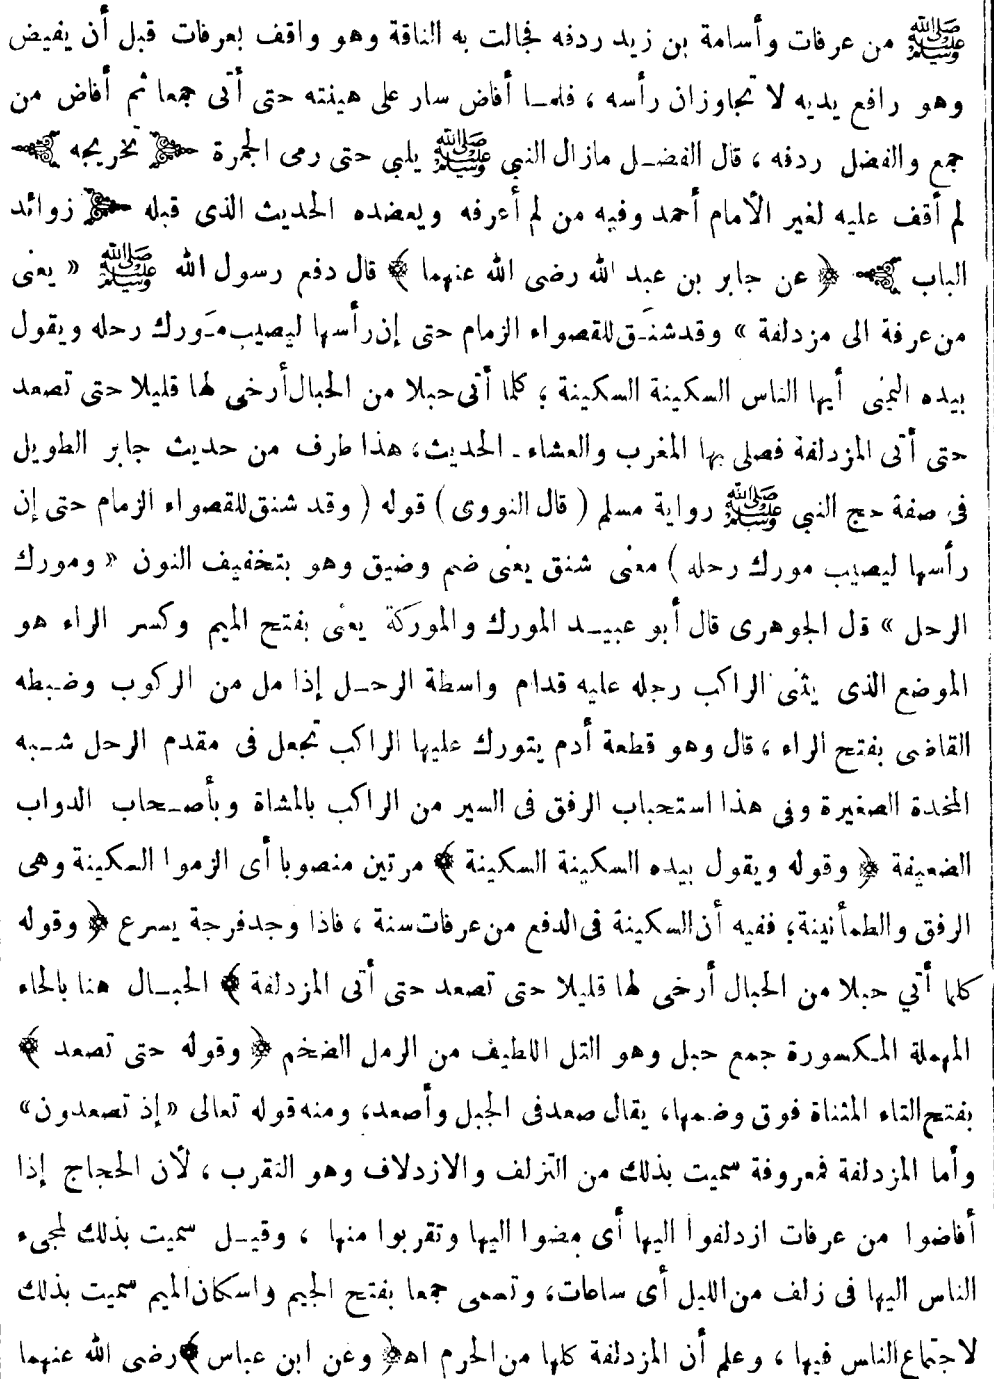 ﷺ من عرفات وأسامة بن زيد ردفه فجالت به الناقة وهو واقف بعرفات قبل أن يفيض
وهو رافع يديه لا تجاوزان رأسه ، فلما أفاض سار على هينته حتى أتى جمعا ثم أفاض من
جمع والفضل ردفه ، قال الفضل مازال النبي ﷺ يلبى حتى رمى الجمرة ﴿ تخريجه ﴾
لم أقف عليه لغير الأمام أحمد وفيه من لم أعرفه ويعضده الحديث الذى قبله ﴿ زوائد
الباب ﴾ ﴿ عن جابر بن عبد الله رضى الله عنهما ﴾ قال دفع رسول الله ﷺ « يعنى
من عرفة الى مزدلفة » وقد شنَق للقصواء الزمام حتى إن رأسها ليصيب مَورك رحله ويقول
بيده اليمنى أيها الناس السكينة السكينة ؛ كلما أتى حبلا من الحبال أرخى لها قليلا حتى تصعد
حتى أتى المزدلفة فصلى بها المغرب والعشاء ـ الحديث ، هذا طرف من حديث جابر الطويل
فى صفة حج النبي ﷺ رواية مسلم ( قال النووى ) قوله ( وقد شنق للقصواء الزمام حتى إن
رأسها ليصيب مورك رحله ) معنى شنق يعنى ضم وضيق وهو بتخفيف النون « ومورك
الرحل » قل الجوهرى قال أبو عبيد المورك والموركة يعنى بفتح الميم وكسر الراء هو
الموضع الذى يثنى الراكب رجله عليه قدام واسطة الرحل إذا مل من الركوب وضبطه
القاضى بفتح الراء ، قال وهو قطعة أدم يتورك عليها الراكب تجعل فى مقدم الرحل شبه
المخدة الصغيرة وفى هذا استحباب الرفق فى السير من الراكب بالمشاة وبأصحاب الدواب
الضعيفة ﴿ وقوله ويقول بيده السكينة السكينة ﴾ مرتين منصوبا أى الزموا السكينة وهى
الرفق والطمأنينة ؛ ففيه أن السكينة فى الدفع من عرفات سنة ، فاذا وجد فرجة يسرع ﴿ وقوله
كلما أتي حبلا من الحبال أرخى لها قليلا حتى تصعد حتى أتى المزدلفة ﴾ الحبال هنا بالحاء
المهملة المكسورة جمع حبل وهو التل اللطيف من الرمل الضخم ﴿ وقوله حتى تصعد ﴾
بفتح التاء المثناة فوق وضمها ، يقال صعد فى الجبل وأصعد ، ومنه قوله تعالى « إذ تصعدون »
وأما المزدلفة فمعروفة سميت بذلك من التزلف والازدلاف وهو التقرب ، لأن الحجاج إذا
أفاضوا من عرفات ازدلفوا اليها أى مضوا اليها وتقربوا منها ، وقيل سميت بذلك لمجىء
الناس اليها فى زلف من الليل أى ساعات ، وتسمى جمعا بفتح الجيم واسكان الميم سميت بذلك
لاجتماع الناس فيها ، وعلم أن المزدلفة كلها من الحرم اه ﴿ وعن ابن عباس ﴾ رضى الله عنهما